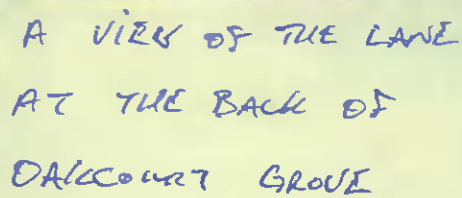 A VIEW OF THE LANE
AT THE BACK OF
OAKCOURT GROVE